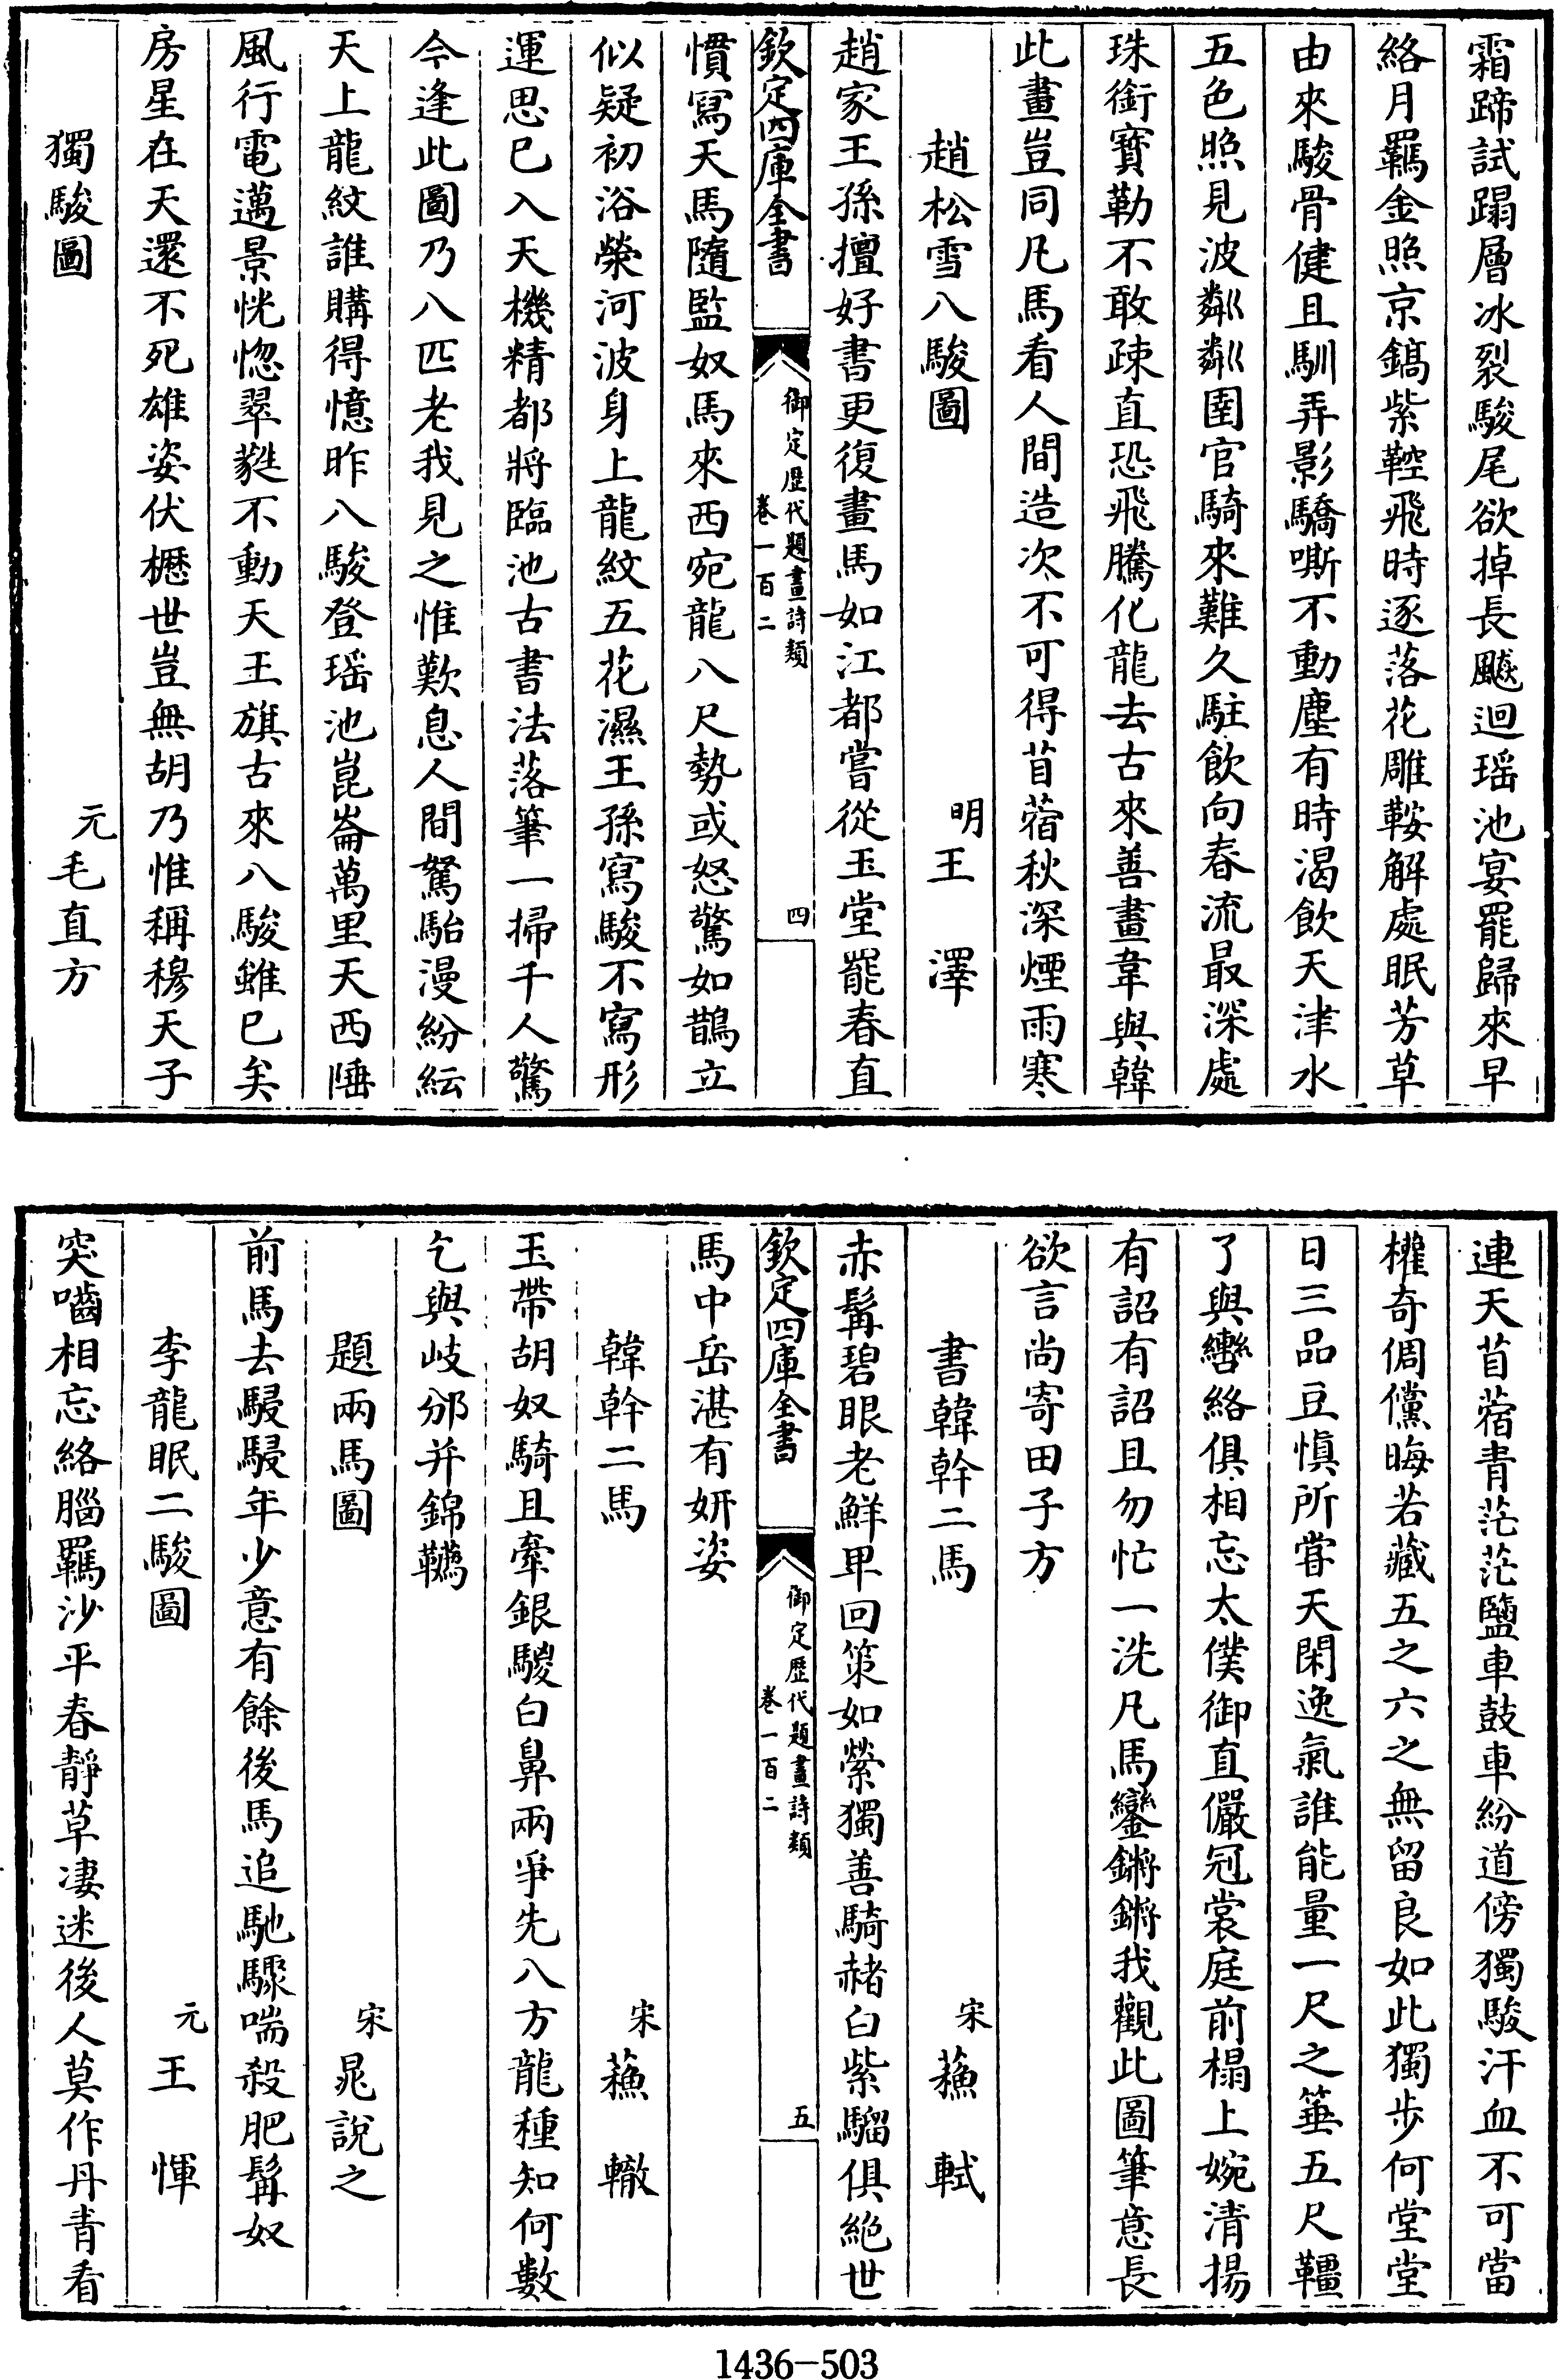 霜蹄試蹋層冰裂駿尾欲掉長飈迴瑶池宴罷歸來早
絡月羈金照京鎬紫鞚飛時逐落花雕鞍解處眠芳草
由來駿骨健且馴弄影驕嘶不動塵有時渴飲天津水
五色照見波粼粼圉官騎來難久駐飲向春流最深處
珠銜寳勒不敢疎直恐飛騰化龍去古來善畫韋與韓
此畫豈同凡馬看人間造次不可得苜蓿秋深煙雨寒
趙松雪八駿圖
明王澤
趙家王孫擅好書更復畫馬如江都嘗從玉堂罷春直
欽定四庫全書
御定歴代題畫詩類
卷一百二
四
慣寫天馬隨監奴馬來西宛龍八尺勢或怒驚如鵲立
似疑初浴滎河波身上龍紋五花濕王孫寫駿不寫形
運思已入天機精都將臨池古書法落筆一掃千人驚
今逢此圖乃八匹老我見之惟歎息人間駑駘漫紛紜
天上龍紋誰購得憶昨八駿登瑶池崑崙萬里天西陲
風行電邁景恍惚翠蕤不動天王旗古來八駿雖已矣
房星在天還不死雄姿伏櫪世豈無胡乃惟稱穆天子
獨駿圖
元毛直方
連天苜蓿青茫茫鹽車鼓車紛道傍獨駿汗血不可當
權奇倜儻晦若藏五之六之無留良如此獨步何堂堂
日三品豆慎所甞天閑逸氣誰能量一尺之箠五尺韁
了與轡絡俱相忘太僕御直儼冠裳庭前榻上婉清揚
有詔有詔且勿忙一洗凡馬鑾鏘鏘我觀此圖筆意長
欲言尚寄田子方
書韓幹二馬
宋蘓軾
赤髯碧眼老鮮卑回策如縈獨善騎赭白紫騮俱絶世
欽定四庫全書
御定歴代題畫詩類
卷一百二
五
馬中岳湛有妍姿
韓幹二馬
宋蘓轍
玉帶胡奴騎且牽銀騣白鼻兩爭先八方龍種知何數
乞與岐邠并錦韉
題兩馬圖
宋晁說之
前馬去駸駸年少意有餘後馬追馳驟喘殺肥髯奴
李龍眠二駿圖
元王惲
突嚙相忘絡腦羈沙平春靜草凄迷後人莫作丹青看
1436-503